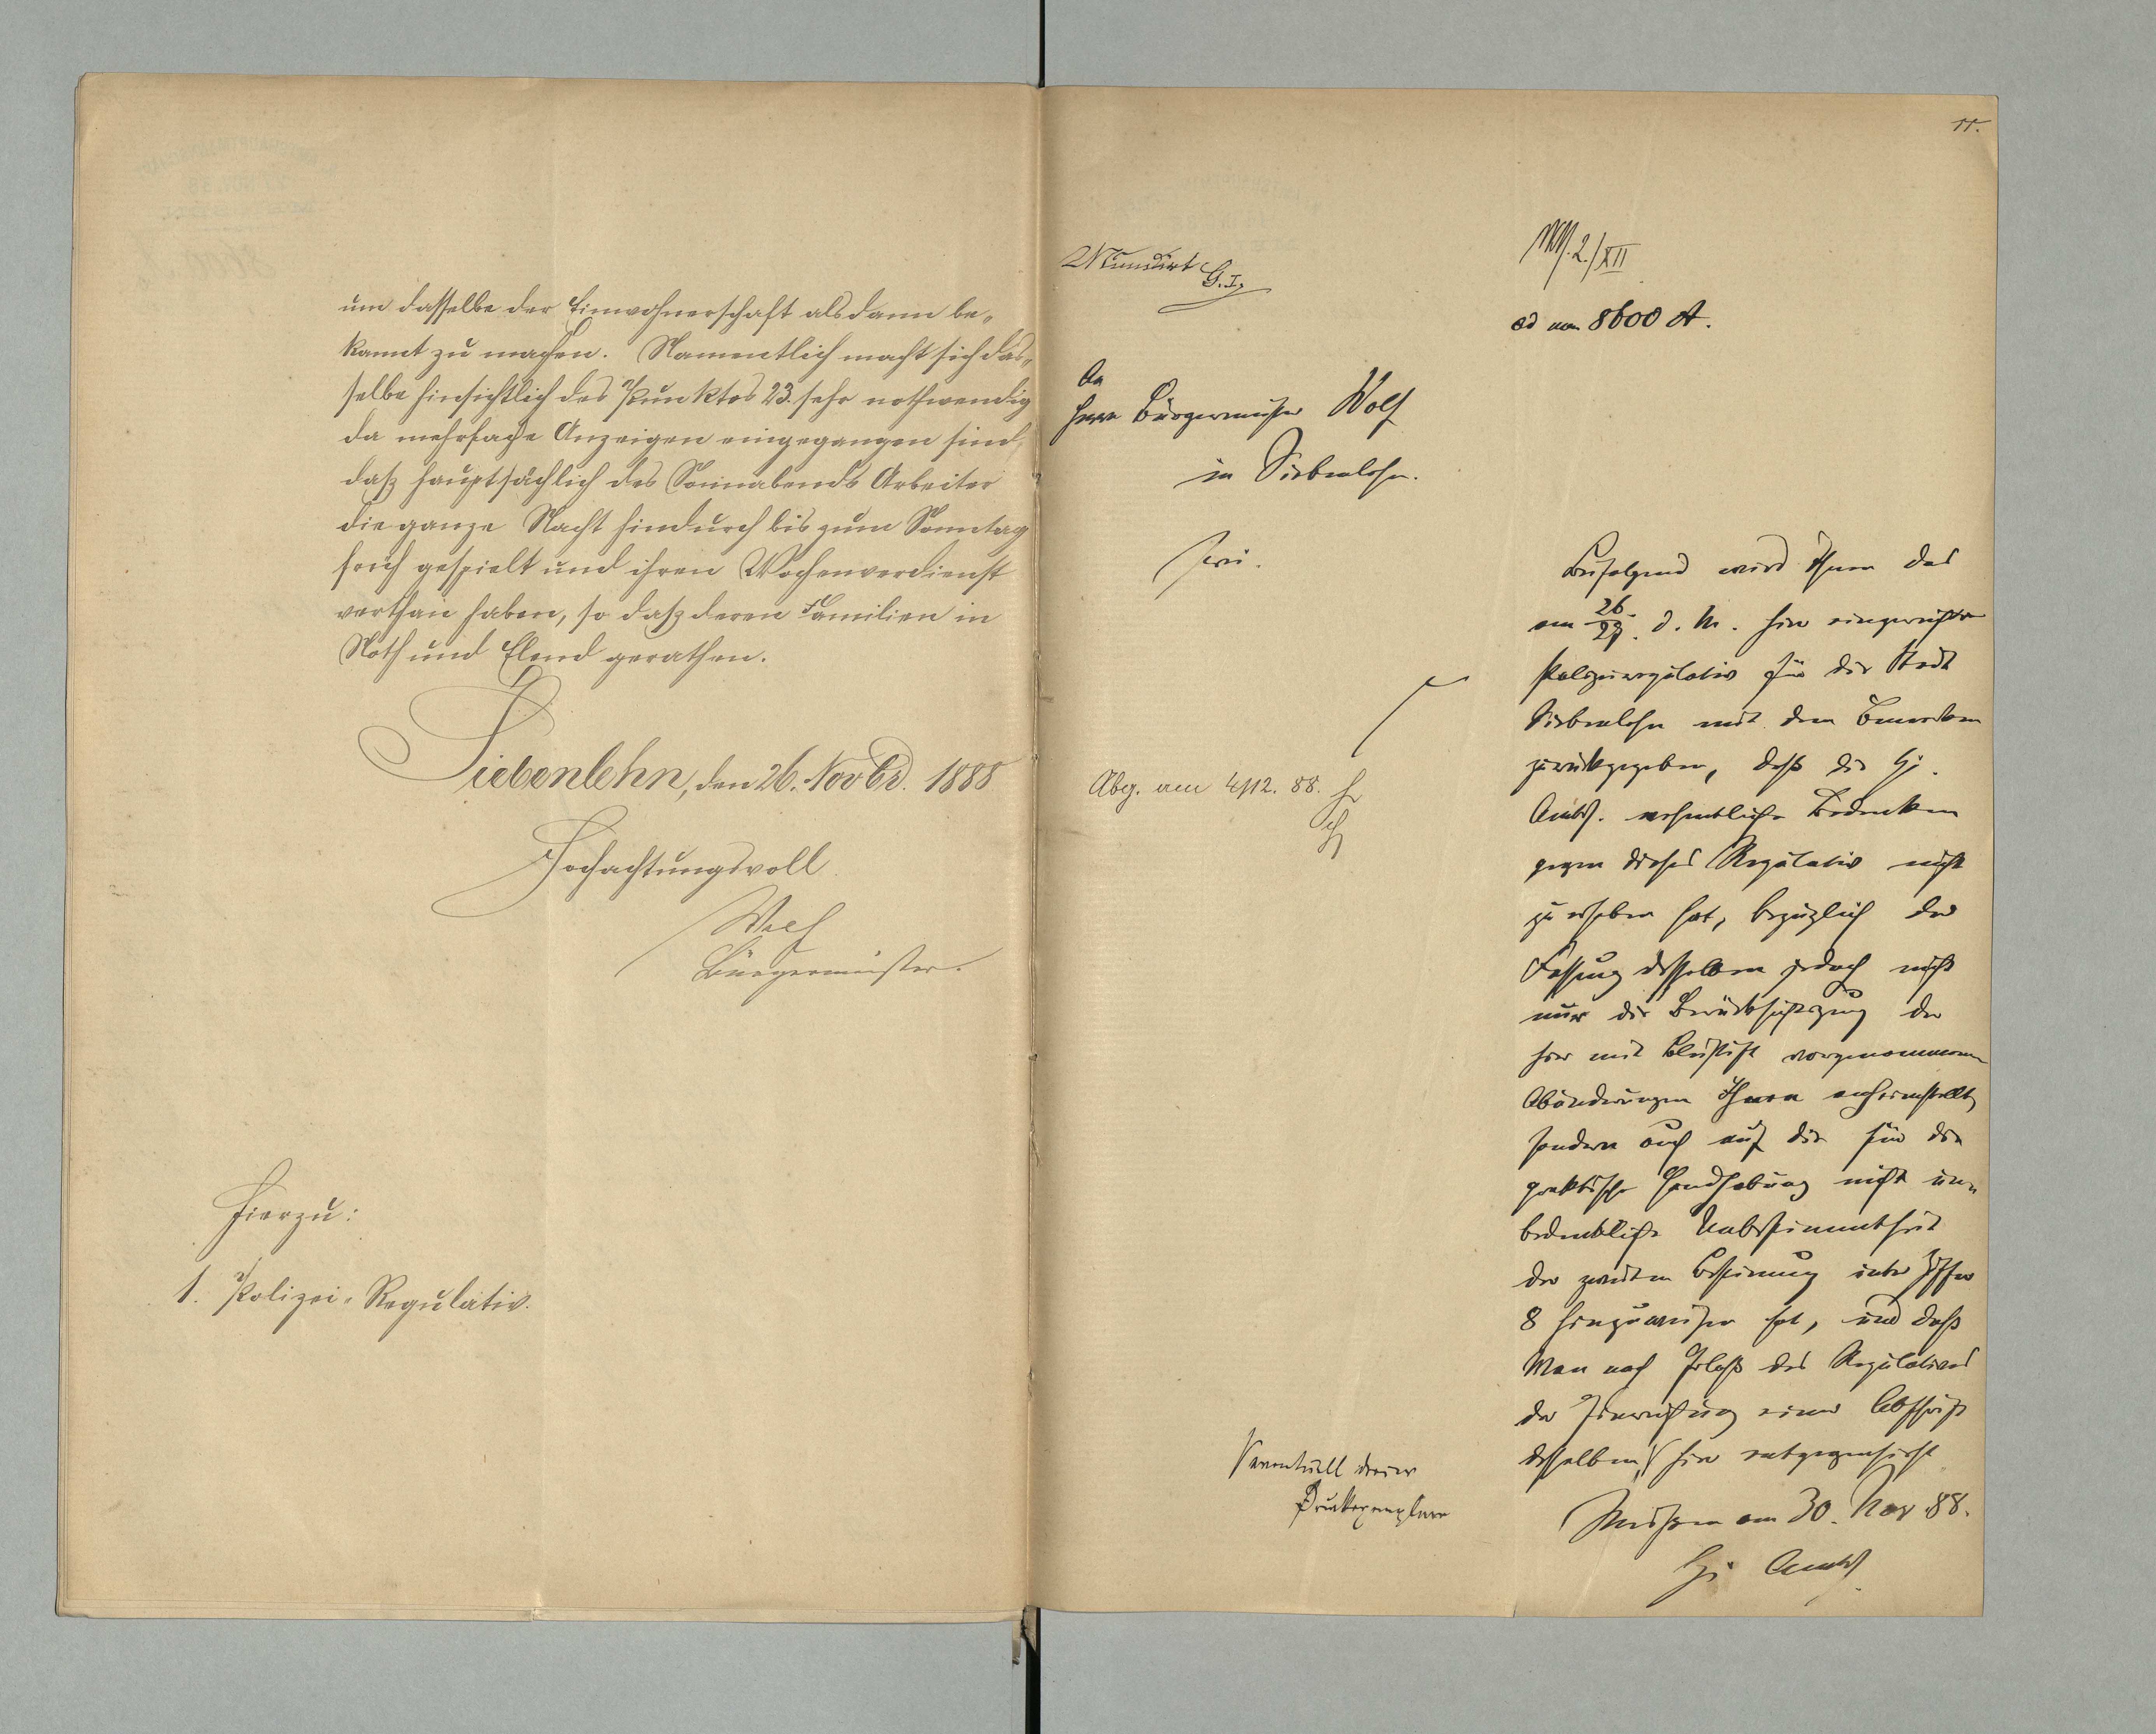 um dasselbe der Einwohnerschaft alsdann be-
kannt zu machen. Namentlich macht sich das-
selbe hinsichtlich des Punktes 23. sehr nothwendig
da mehrfache Anzeigen eingegangen sind,
daß hauptsächlich des Sonnabends Arbeiter
die ganze Nacht hindurch bis zum Sonntag
früh gespielt und ihren Wochenverdienst
verthan haben, so daß deren Familien in
Noth und Elend gerathen.
Siebenlehn, den 26. Novbr. 1888
Hochachtungsvoll
Wolf
Bürgermeister.
Hierzu:
1. Polizei-Regulativ.
11.
Mundirt
2./XII
ad num 8600 A.
An
Herrn Bürgermeister Wolf
in Siebenlehn.
frei.
Abg. am 4/12. 88.
Beifolgend wird Ihnen das
am 26./27. d. M. hier eingereichte
Polizeiregulativ für die Stadt
Siebenlehn mit dem Bemerken
zurückgegeben, daß die K.
Amtsh. wesentliche Bedenken
gegen dieses Regulativ nicht
zu erheben hat, bezüglich der
Fassung desselben jedoch nicht
nur die Berücksichtigung der
hier mit Bleistift vorgenommenen
Abänderungen Ihnen anheimstellt,
sondern auch auf die für die
praktische Handhabung nicht un-
bedenkliche Unbestimmtheit
der zweiten Bestimmung unter Ziffer
8 hinzuweisen hat, und daß
Man nach Erlaß des Regulatives
der Einreichung einer Abschrift
desselben hier entgegensieht
eventuell dreier
Druckexemplare
Meißen am 30. Nov. 88.
K. Amtsh.